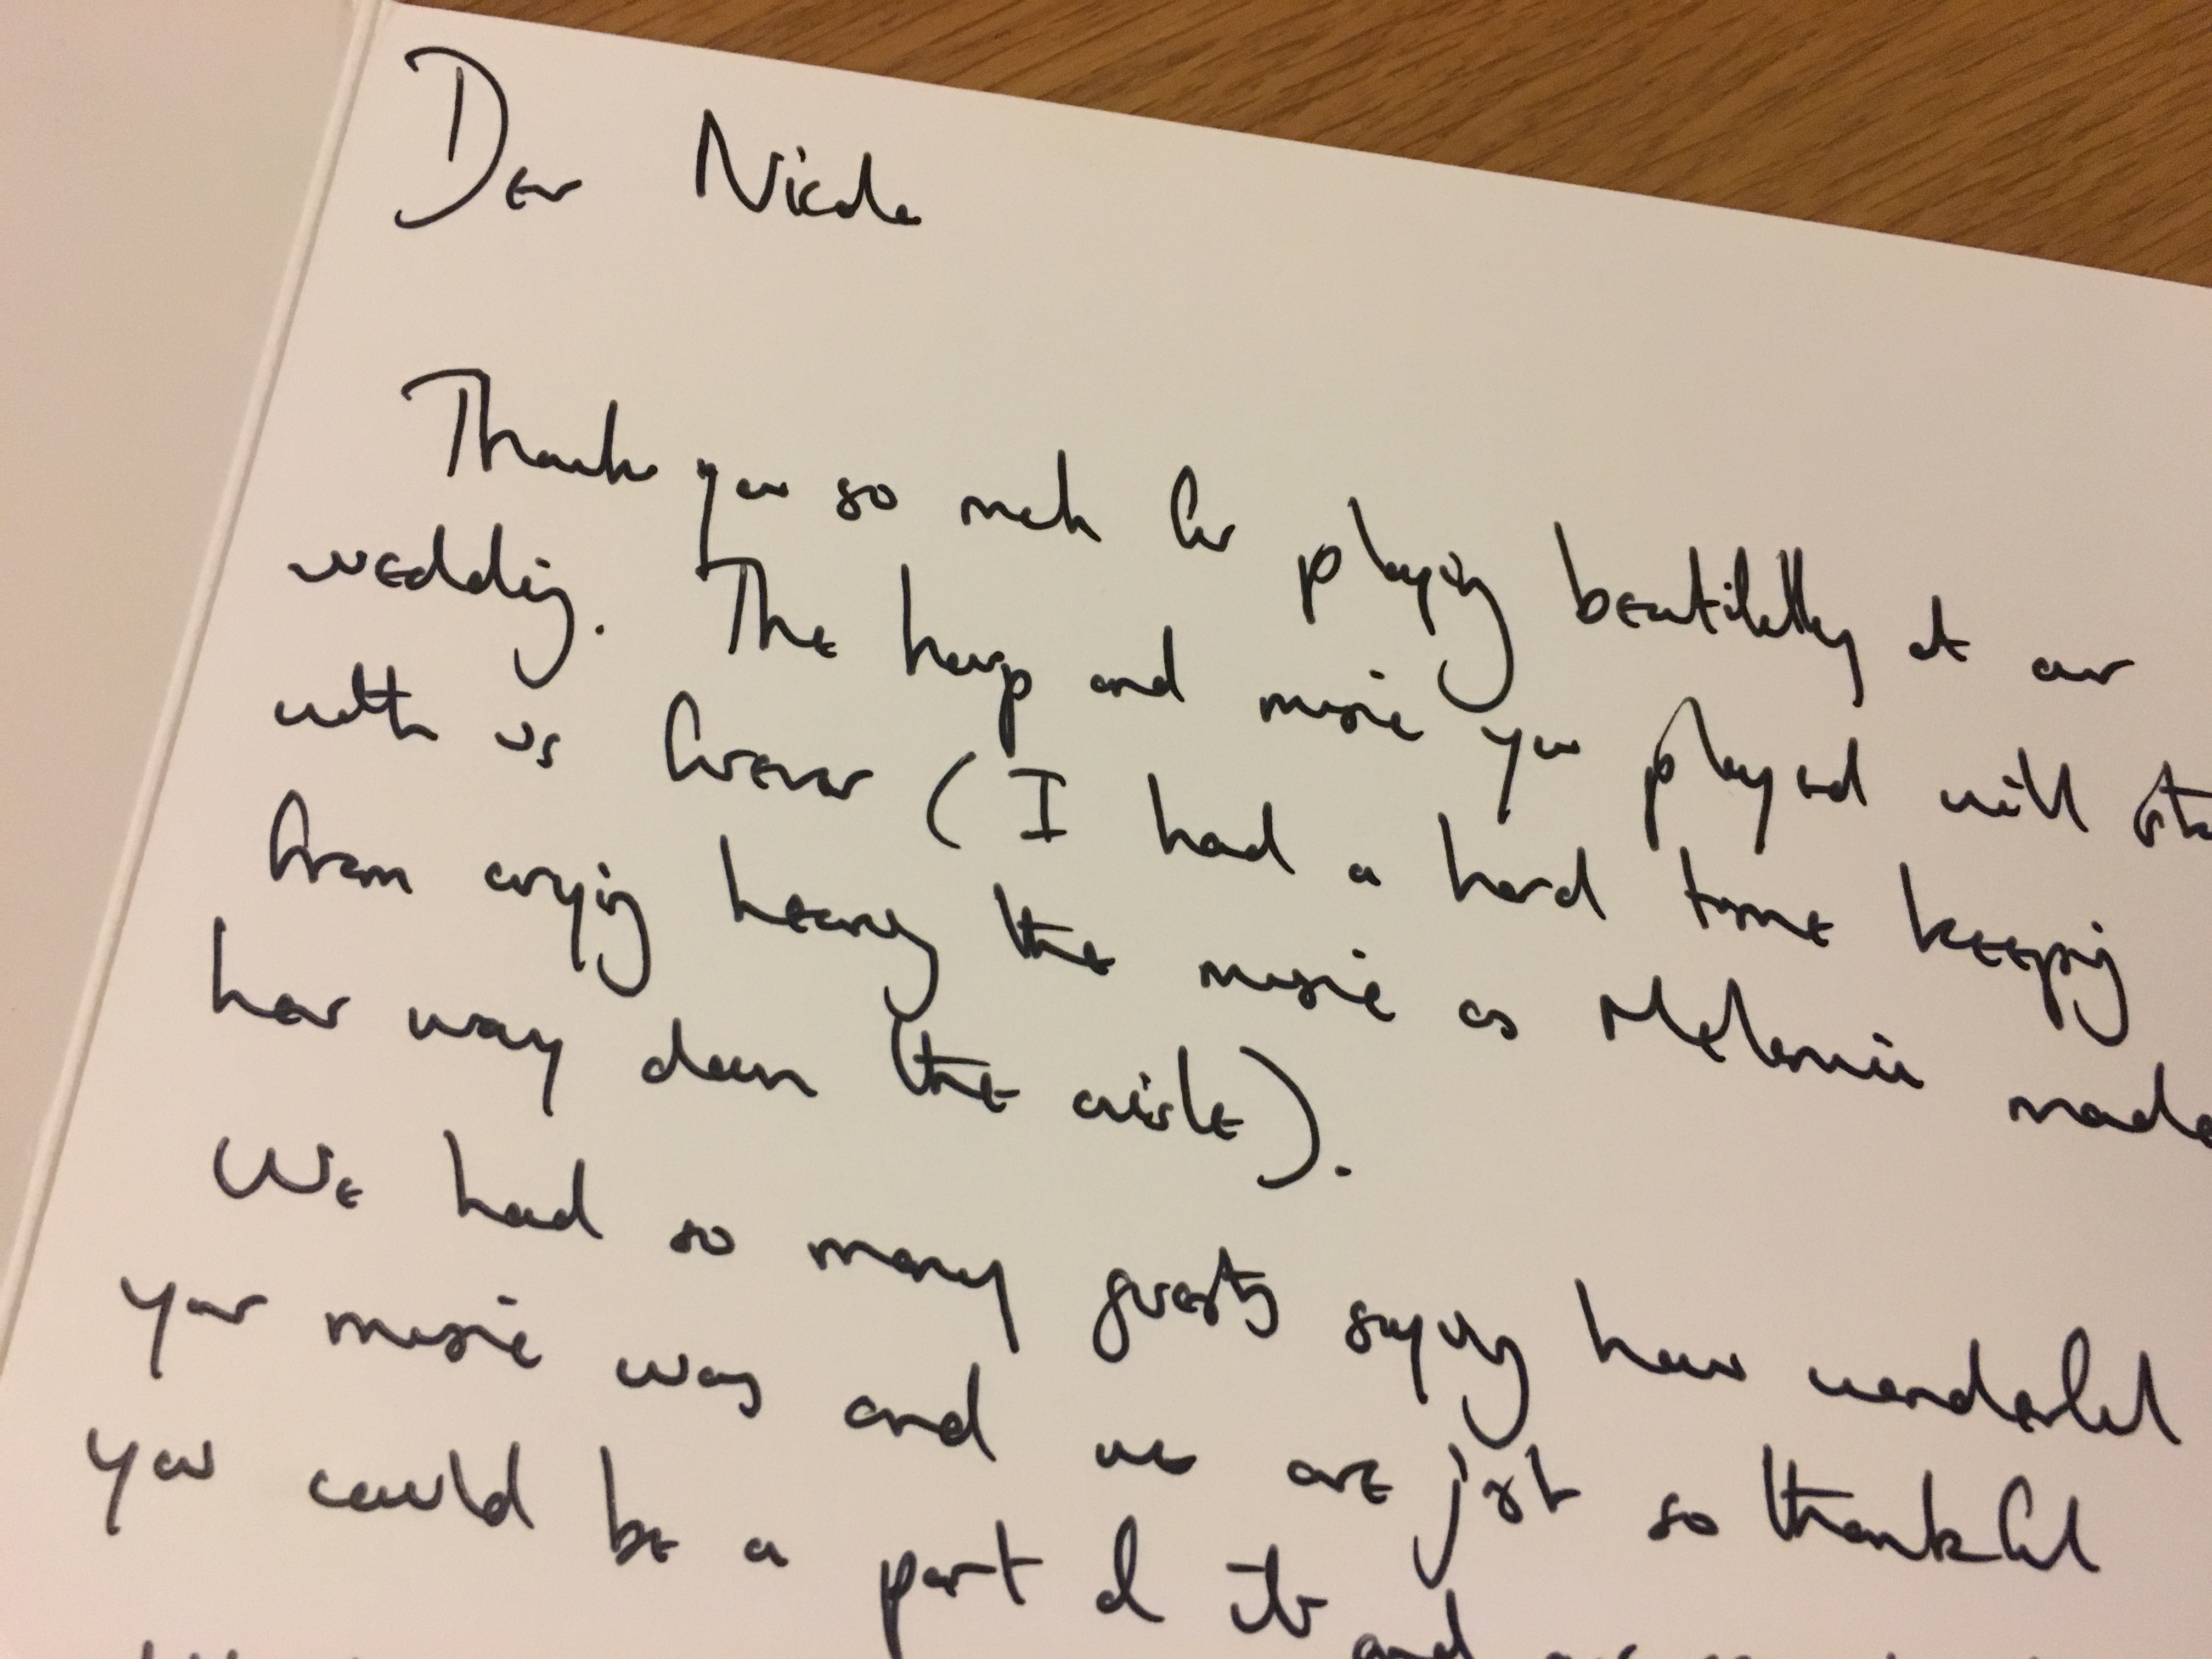 Dear Nicole
Thank you so much for playing beautifully at our
wedding. The harp and music you played will
with us forever (I had a hard time keeping
from crying hearing the music as Melanie made
her way down the aisle).
We had so many guests saying how wonderful
your music was and we are just so thankful
you could be a part of it and